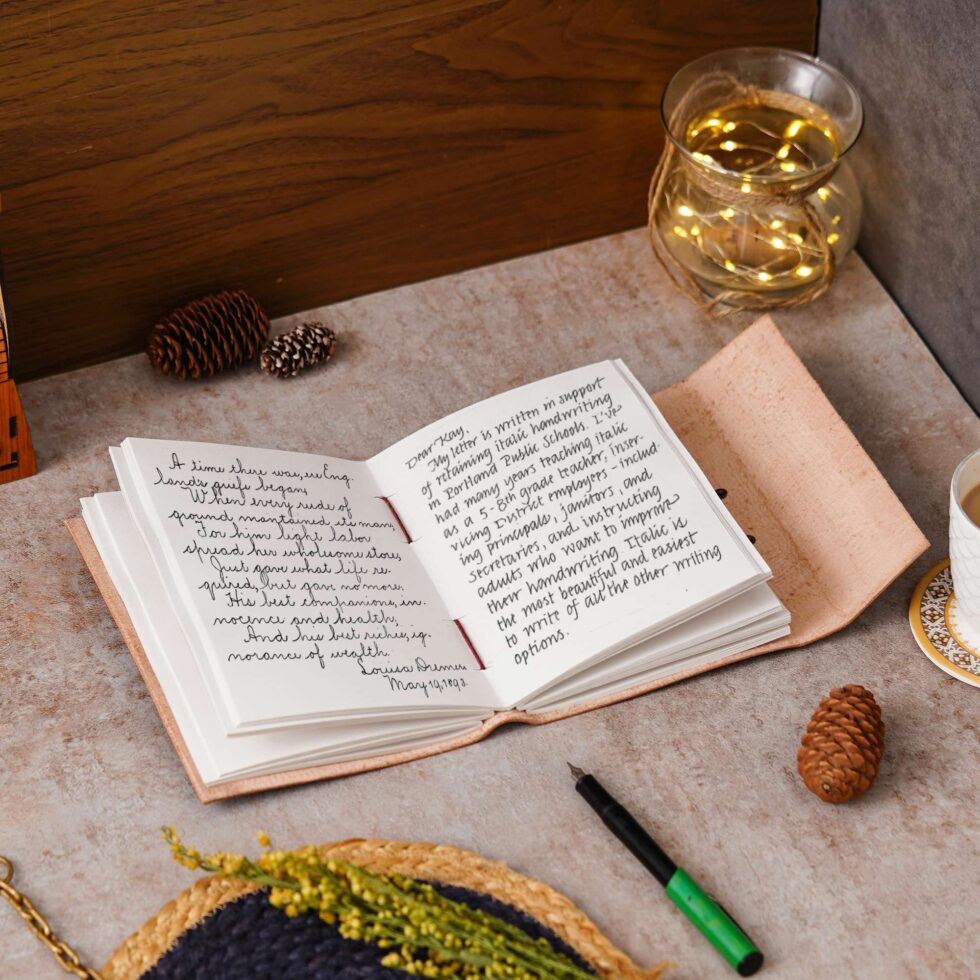 A time there was, ere Eng-
lands griefs began,
When every rude of
ground maintained its man,
For him light labor
spread her wholesome store,
Just gave what life re-
quired, but gave no more.
His best companions, in-
nocence and health,
And his best riches, ig-
norance of wealth.
Louisa
May 19, 1893.
Dear Kay,
My letter is written in support
of retaining italic handwriting
in Portland Public Schools. I've
had many years teaching italic
as a 5-8th grade teacher, inser-
vicing District employers - includ
ing principals, janitors, and
secretaries, and instructing
adults who want to improve
their handwriting. Italic is
the most beautiful and easiest
to write of all the other writing
options.